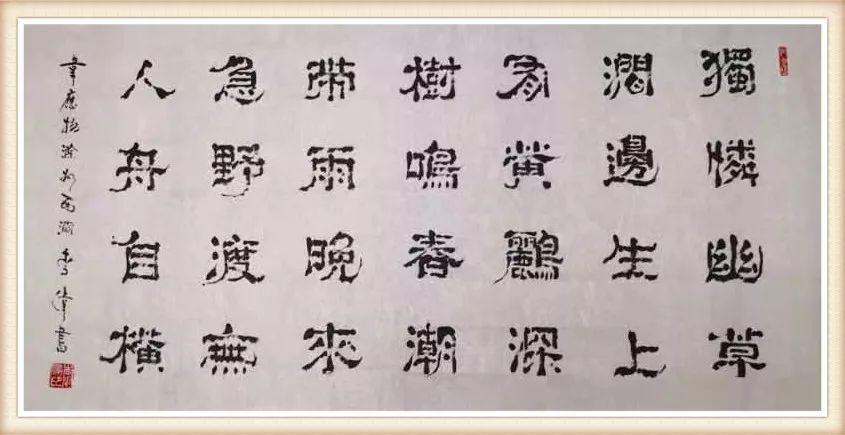 獨憐幽草
澗邊生上
有黃鸝深
樹鳴春潮
帶雨晚來
急野渡無
人舟自橫
韋應物滁州西澗 書